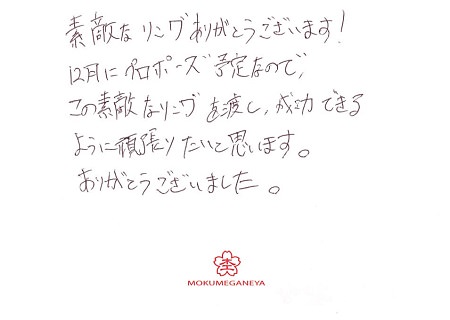 素敵なリングありがとうございます!
12月にペロポーズ予定なので、
この素敵なリングを渡し、成功できる
ように頑張りたいと思います。
ありがとうございました。
MOKUMEGANEYA